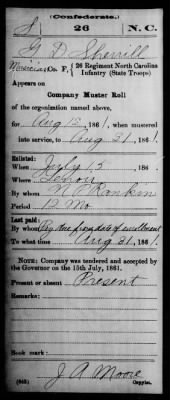 (Confederate.)
S 26 N. C.
G D Sherrill
Musician, Co. F, 26 Regiment North Carolina
Infantry (State Troops)
Appears on
Company Muster Roll
of the organization named above,
for Aug 12, 1861, when mustered
into service, to Aug 31, 1861.
Enlisted:
When July 15, 186 .
Where Lenoir
By whom N P Rankin
Period 12 Mo
Last paid:
By whom Pay due from date of enrollment
To what time Aug 31, 1861.
NOTE: Company was tendered and accepted by
the Governor on the 15th July, 1861.
Present or absent Present
Remarks:
Book mark:
J A Moore
(642) Copyist.